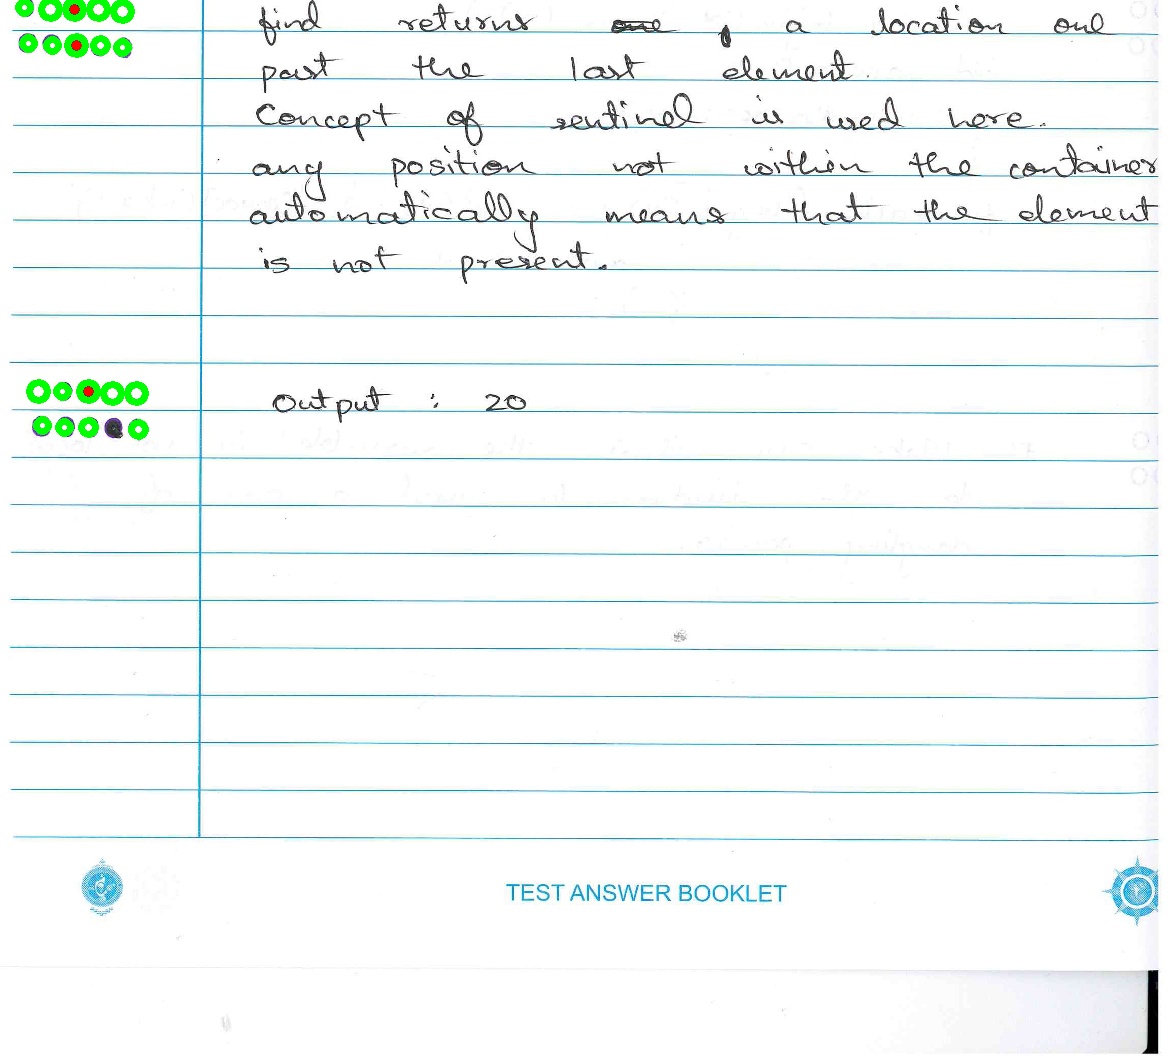 find returns a location one
past the last element.
Concept of sentinel is used here.
any position not within the container
automatically means that the element
is not present.
Output : 20
TEST ANSWER BOOKLET